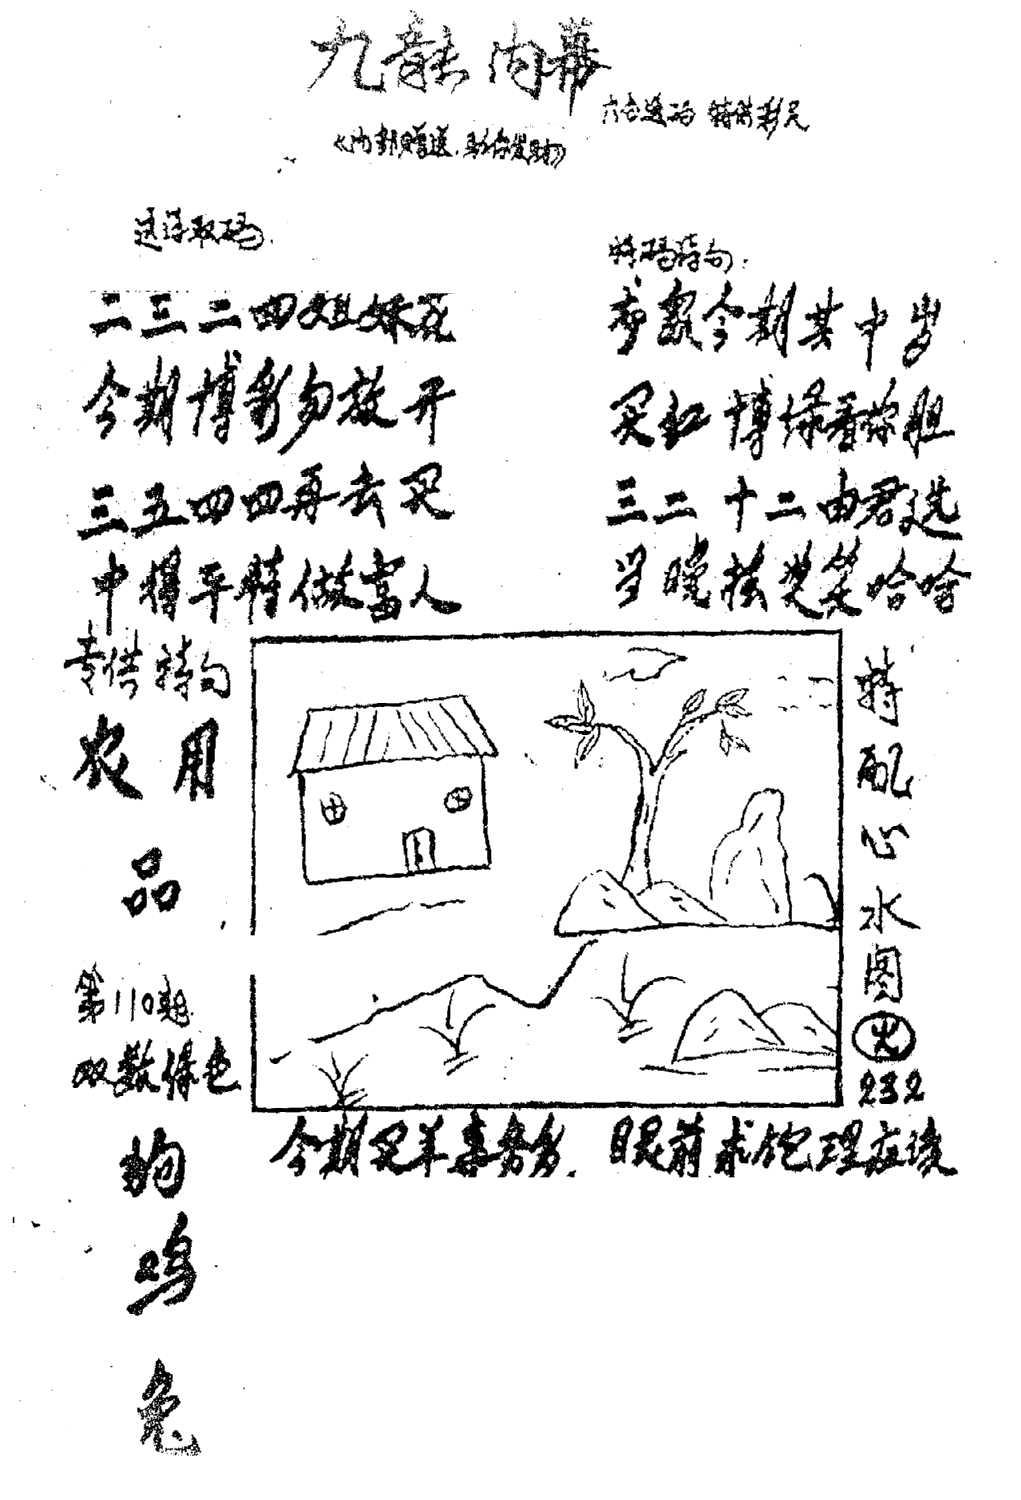 九龍内幕
六合透码 特供彩民
《内部赠送.助你发财》
送诗取码.
特码诗句:
二三二四姐妹花
今期博彩勿放开
三五四四再去买
中得平特做富人
今期其中岁
买红博绿看你胆
三二十二由君选
当晚搖奖笑哈哈
专供诗句
农用
品
第110期
双数绿色
狗
鸡
兔
特
配
心
水
图
火
232
今期买羊喜多多. 眼前求饱理应该